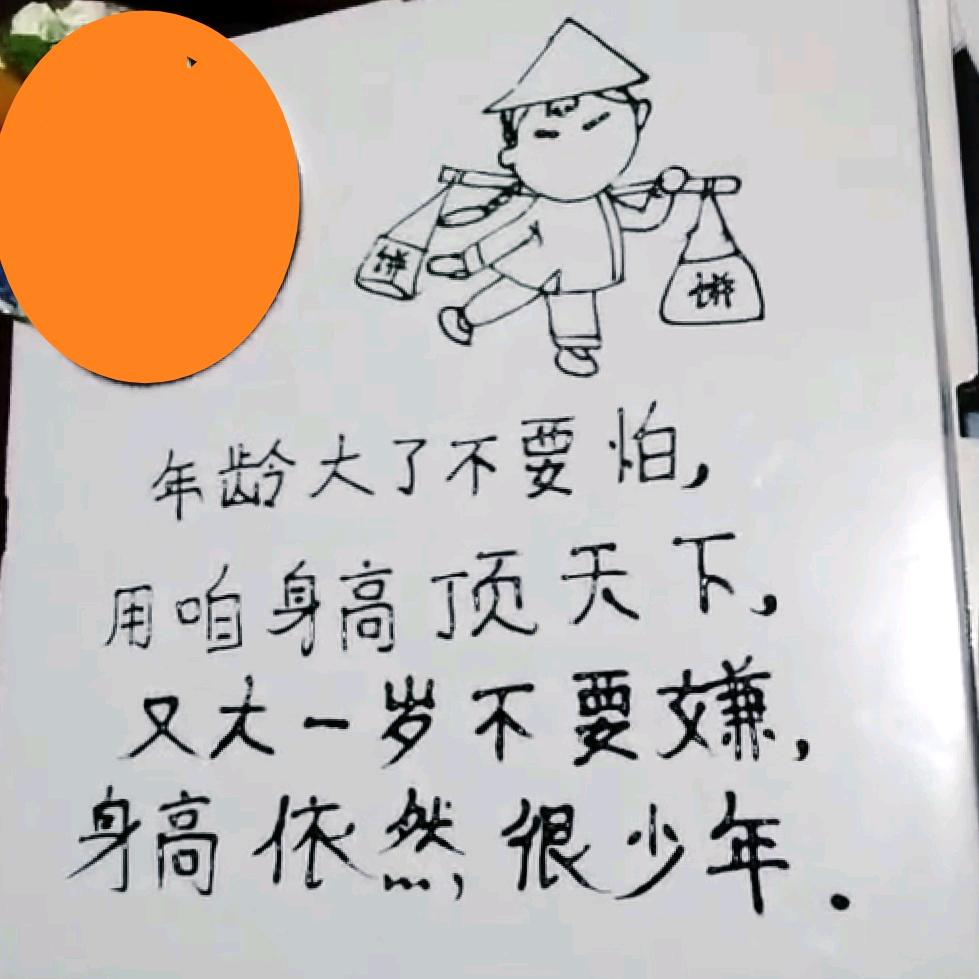 饼 饼
年龄大了不要怕,
用咱身高顶天下,
又大一岁不要嫌,
身高依然,很少年.